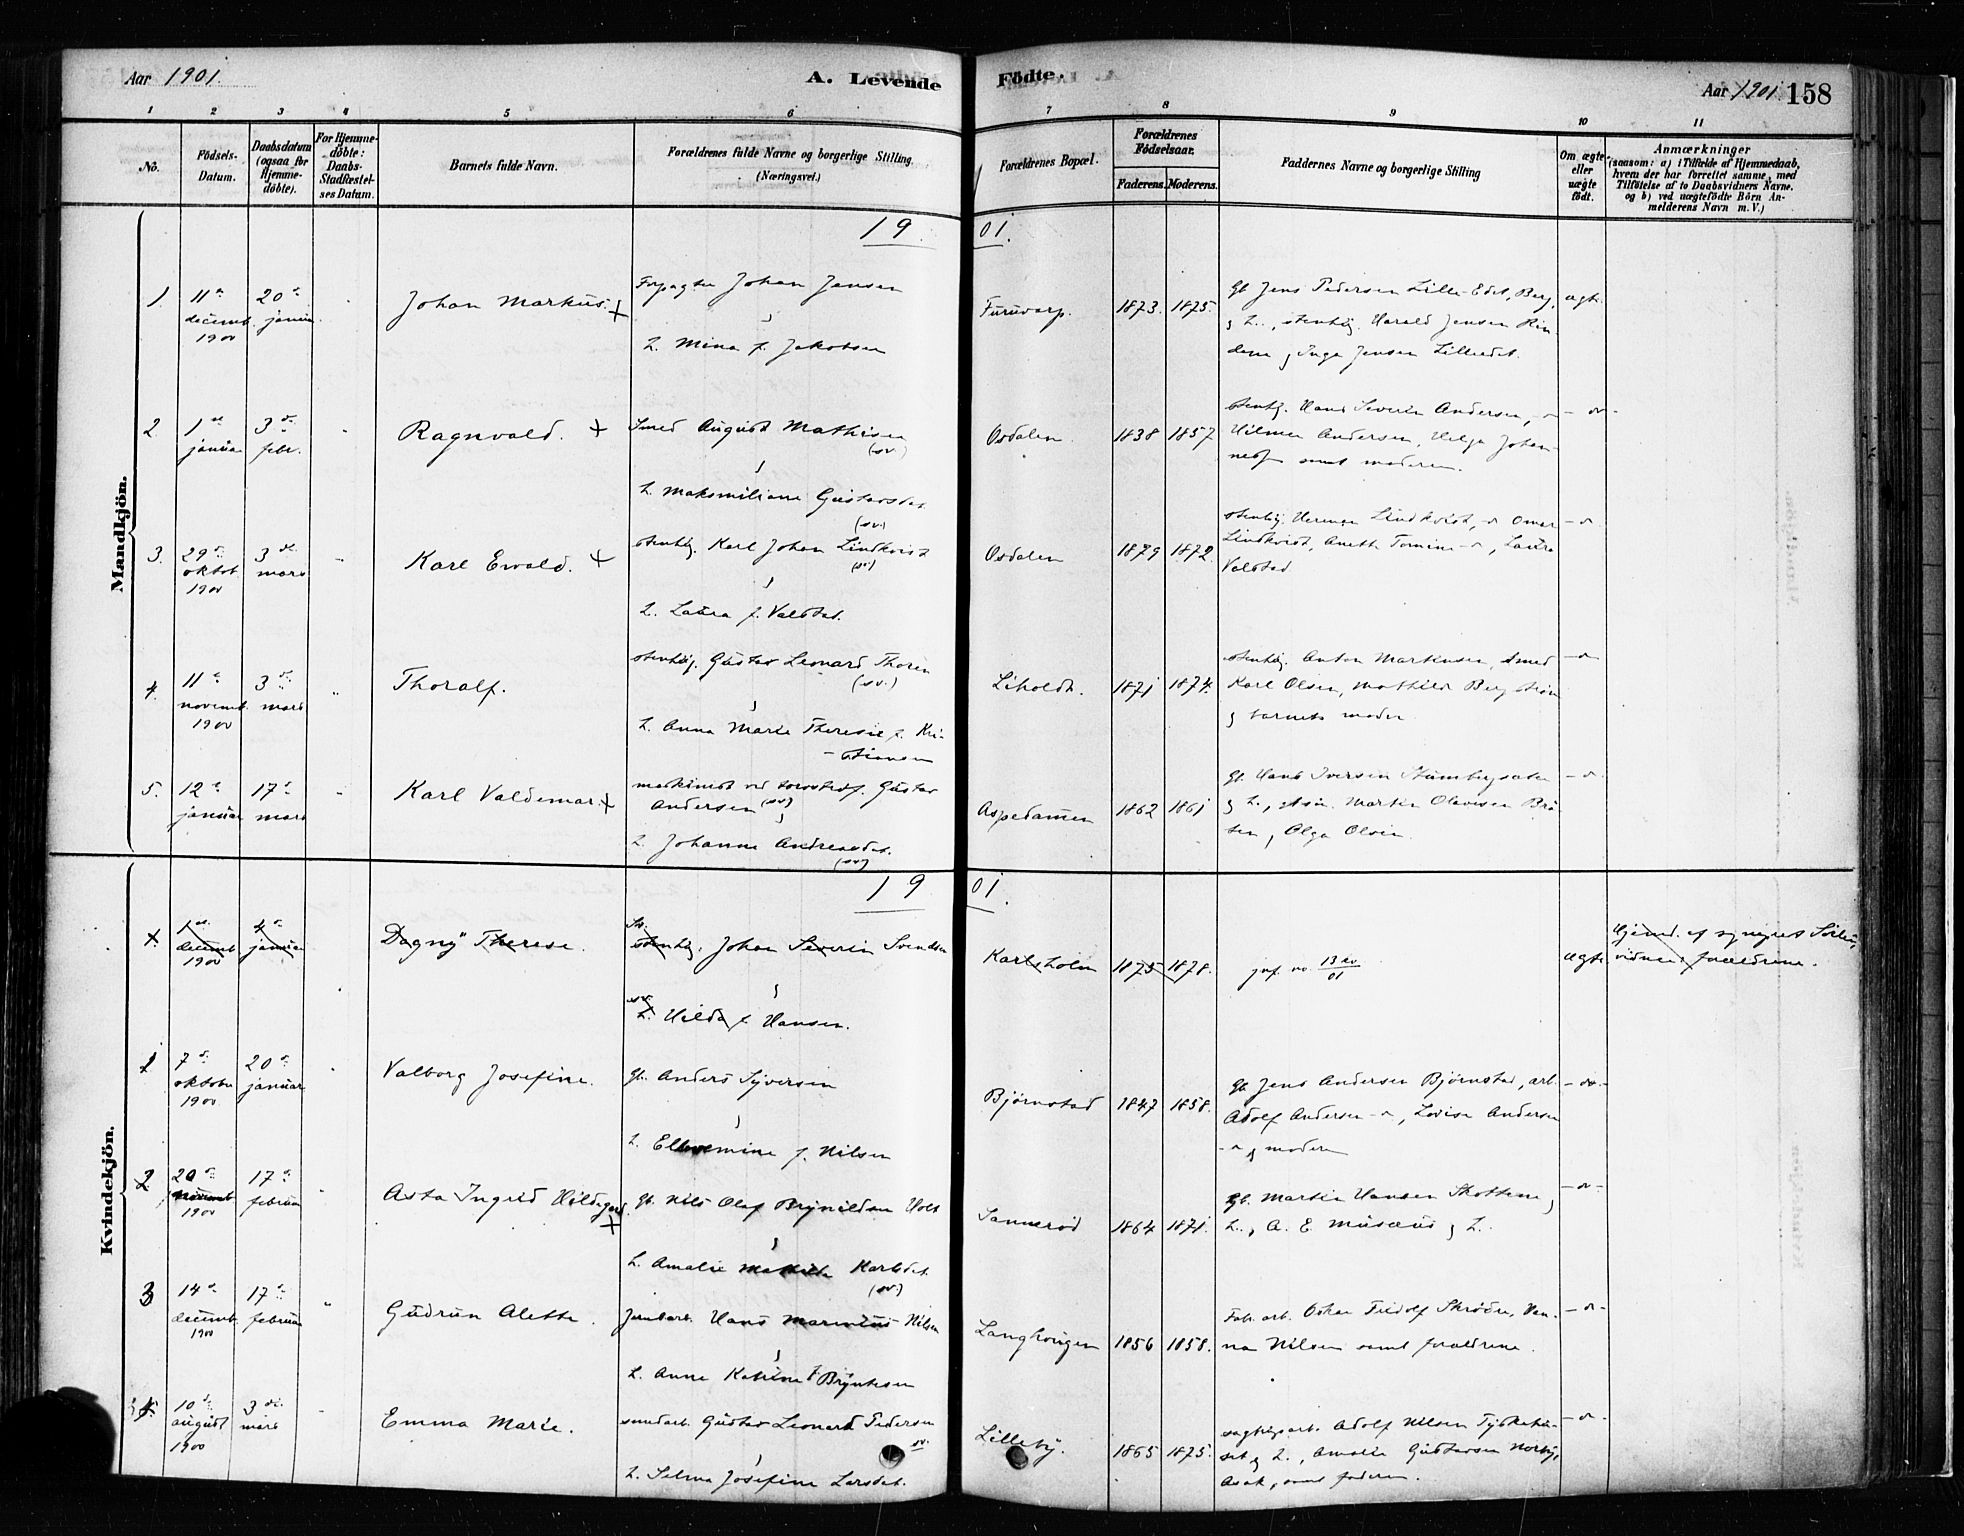 Aar 1901.
A. Levende
Födte.
Aar 1901.
158
1 2 3 4 5 6 7 8 9 10 11
No.
Födsels-
Datum.
Daabsdatum
(ogsaa for
Hjemme-
döbte).
For Hjemme-
döbte:
Daabs-
Stadfæstel-
ses Datum.
Barnets fulde Navn.
Forældrenes fulde Navne og borgerlige Stilling.
(Næringsvei.)
Forældrenes Bopæl.
Forældrenes
Födselsaar.
Faderens. Moderens.
Faddernes Navne og borgerlige Stilling
Om ægte
eller
uægte
födt.
Anmærkninger
(saasom: a) i Tilfælde af Hjemmedaab,
hvem der har forrettet samme, med
Tilföielse af to Daabsvidners Navne.
og b) ved uægtefödte Börn An-
melderens Navn m. V.)
Mandkjön.
19 01.
1. 11 decemb. 1900 20 januar
Johan Markus.
Forpagter Johan Jensen
&
H. Mina f. Jakobsen
Furuvarp. 1873. 1875.
Gb. Jens Pedersen Lille-Edet, Berg,
& H., stenhg. Harald Jensen Rin-
dene, Inga Jensen Lilleedet.
ægte.
2. 1 januar 3 febr.
Ragnvald.
Smed August Mathisen
(sv.)
&
H. Maksmiliane Gustavsdat.
(sv.)
Osdalen. 1838 1857
stenhg. Hans Severin Andersen,
Hilmer Andersen, Helga Johan-
nes samt moderen.
3. 29 oktob. 1900 3 mars
Karl Ewald.
stenhg. Karl Johan Lindkvist
(sv)
&
H. Laura f. Valstad.
Osdalen 1879 1872.
stenhg. Herman Lindkvist, Omar
Lindkvist, Anette Tomine, Laura
Valstad.
4. 11 novemb. 1900 3 mars
Thoralf.
stenhg. Gustav Leonard Thoren
(sv.)
&
H. Anna Marie Theresie f. Kri-
stiansen
Liholdt. 1871 1874.
stenhg. Anton Markusen, smed
Karl Olsen, Mathilde Bergstrøm
& barnets moder.
5. 12 januar 17 mars
Karl Valdemar.
maskinist ved torvstrøf. Gustav
Andersen (sv)
&
H. Johanne Andreasdat.
(sv)
Aspedammen 1862 1861
gb. Hans Iversen
& H., Martin Olavesen Brå-
ten, Olga Olsen.
Kvindekjön.
19 01.
1 decemb. 1900 4 januar
Dagny Therese.
stenhg. Johan Severin Svendsen
&
H. Hilda f. Hansen.
Karlsholm 1875 1878.
jvf. no. 13 kv/01
ægte
1 7 oktober 1900 20 januar
Valborg Josefine.
gb. Anders Syversen
&
H. Ellevemine f. Nilsen
Bjørnstad 1847 1858.
Gb. Jens Andersen Bjørnstad, arb.
Adolf Andersen, Lovise Andersen
& moderen
2 20 novemb 1900 17 februar
Asta Ingrid Hildegard.
gb. Nils Olaf Brynildsen Holt
&
H. Amalie Mathilde Karlsdat.
(sv.)
Sannerød 1864 1871.
gb. Martin Hansen Skottene &
H., A. E. Musæus & H.
3 14 decemb. 1900 17 februar
Gudrun Alette.
Jernbarb. Hans Marinius Nilsen
&
H. Anne Katrine f Bryntesen
Langhougen 1856 1858.
Fab. arb. Oskar Fridolf Skrøder, Han-
na Nilsen samt forældrene.
10 august 1900 3 mars
Emma Marie.
smedarb. Gustav Leonard Pedersen
sv.
&
H. Selma Josefine Larsdat.
Lilleby. 1865 1875.
sagbrugsarb. Adolf Nilsen Tyskehu-
set & H., Amalie Gustavsen Norby,
Asak, samt faderen.